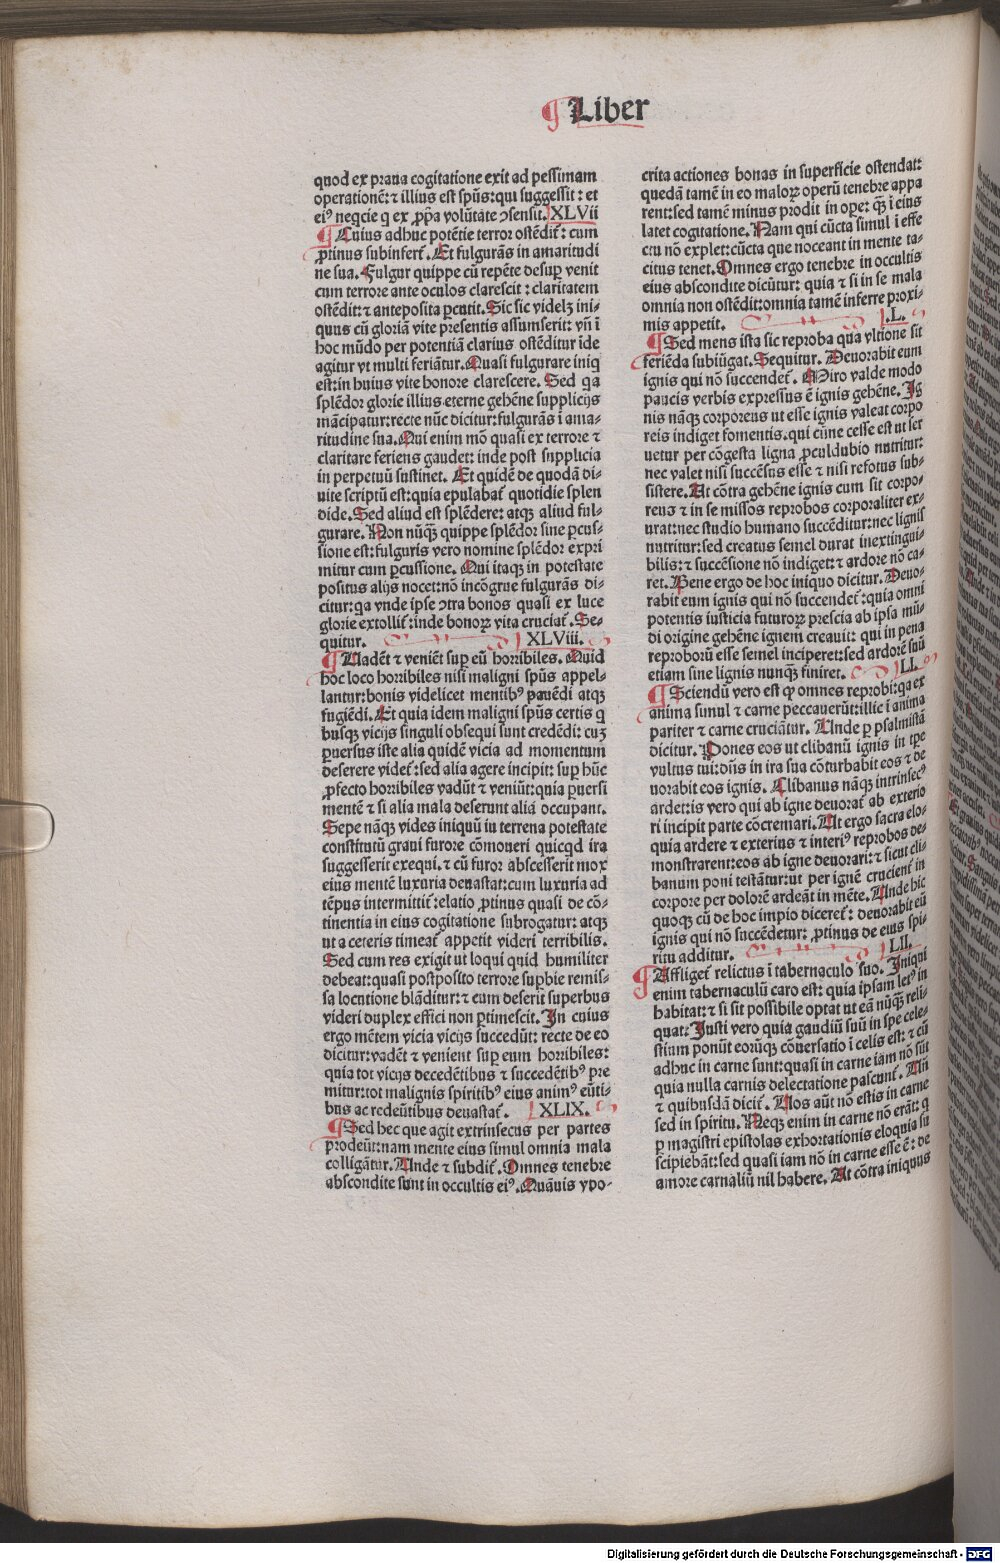 ¶ Liber
quod ex praua cogitatione exit ad pessimam
operationē: ⁊ illius est spūs: qui suggessit: et
eiꝰ neqcie q ex ꝓpa volūtate ↄsensit. XLVii
¶ Cuius adhuc potētie terror ostēdit̄: cum
ꝓtinus subinfert̄. Et fulgurās in amaritudi
ne sua. Fulgur quippe cū repēte desuꝑ venit
cum terrore ante oculos clarescit: claritatem
ostēdit: ⁊ anteposita ꝑcutit. Sic sic videlꝫ ini-
quus cū gloriā vite presentis assumserit: vn̄ ī
hoc mūdo per potentiā clarius ostēditur īde
agitur vt multi feriātur. Quasi fulgurare iniq
est: in huius vite honore clarescere. Sed qa
splēdor glorie illius eterne gehēne supplicijs
mācipatur: recte nūc dicitur: fulgurās ī ama-
ritudine sua. Qui enim mō quasi ex terrore ⁊
claritare feriens gaudet: inde post supplicia
in perpetuū sustinet. Et quidē de quodā di-
uite scriptū est: quia epulabat̄ quotidie splen
dide. Sed aliud est splēdere: atqꝫ aliud ful-
gurare. Non nūqꝫ quippe splēdor sine ꝑcus-
sione est: fulguris vero nomine splēdor expri
mitur cum ꝑcussione. Qui itaqꝫ in potestate
positus alijs nocet: nō incōgrue fulgurās di-
citur: qa vnde ipse ↄtra bonos quasi ex luce
glorie extollit̄: inde bonoꝝ vita cruciat̄. Se-
quitur. XLViii.
¶ Uadēt ⁊ veniēt suꝑ eū horribiles. Quid
hoc loco horribiles nisi maligni spūs appel-
lantur: bonis videlicet mentibꝰ pauēdi atqꝫ
fugiēdi. Et quia idem maligni spūs certis q
busqꝫ vicijs singuli obsequi sunt credēdi: cuꝫ
ꝑuersus iste alia quidē vicia ad momentum
deserere videt̄: sed alia agere incipit: suꝑ hūc
ꝓfecto horribiles vadūt ⁊ veniūt: quia ꝑuersi
mentē ⁊ si alia mala deserunt alia occupant.
Sepe nāqꝫ vides iniquū in terrena potestate
constitutū graui furore cōmoueri quicqd ira
suggesserit exequi. ⁊ cū furor abscesserit mox
eius mentē luxuria deuastat: cum luxuria ad
tēpus intermittit̄: elatio ꝓtinus quasi de cō-
tinentia in eius cogitatione subrogatur: atqꝫ
ut a ceteris timeat̄ appetit videri terribilis.
Sed cum res exigit ut loqui quid humiliter
debeat: quasi postposito terrore suꝑbie remis-
sa locutione blāditur: ⁊ cum deserit superbus
videri duplex effici non ꝑtimescit. In cuius
ergo mētem vicia vicijs succedūt: recte de eo
dicitur: vadēt ⁊ venient suꝑ eum horribiles:
quia tot vicijs decedētibus ⁊ succedētibꝰ pre
mitur: tot malignis spiritibꝰ eius animꝰ eūti-
bus ac redeūtibus deuastat̄. XLIX.
¶ Sed hec que agit extrinsecus per partes
prodeūt: nam mente eius simul omnia mala
colligātur. Unde ⁊ subdit̄. Omnes tenebre
abscondite sunt in occultis eiꝰ. Quāuis ypo-
crita actiones bonas in superficie ostendat:
quedā tamē in eo maloꝝ operū tenebre appa
rent: sed tamē minus prodit in oꝑe: qꝫ ī eius
latet cogitatione. Nam qui cūcta simul ī effe
ctu nō explet: cūcta que noceant in mente ta-
citus tenet. Omnes ergo tenebre in occultis
eius abscondite dicūtur: quia ⁊ si in se mala
omnia non ostēdit: omnia tamē inferre proxi-
mis appetit. .L.
¶ Sed mens ista sic reproba qua vltione sit
feriēda subiūgat. Sequitur. Deuorabit eum
ignis qui nō succendet̄. Miro valde modo
paucis verbis expressus ē ignis gehēne. Ig
nis nāqꝫ corporeus ut esse ignis valeat corpo
reis indiget fomentis. qui cūne cesse est ut ser
uetur per cōgesta ligna ꝓculdubio nutritur:
nec valet nisi succēsus esse ⁊ nisi refotus sub-
sistere. At cōtra gehēne ignis cum sit corpo-
reus ⁊ in se missos reprobos corporaliter ex-
urat: nec studio humano succēditur: nec lignis
nutritur: sed creatus semel durat inextingui-
bilis: ⁊ succēsione nō indiget: ⁊ ardore nō ca-
ret. Bene ergo de hoc iniquo dicitur. Deuo-
rabit eum ignis qui nō succendet̄: quia omni
potentis iusticia futuroꝝ prescia ab ipsa mū-
di origine gehēne ignem creauit: qui in pena
reproborū esse semel inciperet: sed ardorē suū
etiam sine lignis nunqꝫ finiret. LI.
¶ Sciendū vero est ꝙ omnes reprobi: qa ex
anima simul ⁊ carne peccauerūt: illic ī anima
pariter ⁊ carne cruciātur. Unde ꝑ psalmistā
dicitur. Pones eos ut clibanū ignis in tp̄e
vultus tui: dn̄s in ira sua cōturbabit eos ⁊ de
uorabit eos ignis. Clibanus nāqꝫ intrinsecꝰ
ardet: is vero qui ab igne deuorat̄ ab exterio
ri incipit parte cōcremari. Ut ergo sacra elo-
quia ardere ⁊ exterius ⁊ interiꝰ reprobos de-
monstrarent: eos ab igne deuorari: ⁊ sicut cli-
banum poni testātur: ut per ignē crucient̄ in
corpore per dolorē ardeāt in mēte. Unde hic
quoqꝫ cū de hoc impio diceret̄: deuorabit eū
ignis qui nō succēdetur: ꝓtinus de eius spi-
ritu additur. LII.
¶ Affliget̄ relictus ī tabernaculo suo. Iniqui
enim tabernaculū caro est: quia ipsam letꝰ in
habitat: ⁊ si sit possibile optat ut eā nūqꝫ reli-
quat: Justi vero quia gaudiū suū in spe cele-
stium ponūt eorūqꝫ cōuersatio ī celis est: ⁊ cū
adhuc in carne sunt: quasi in carne iam nō sūt
quia nulla carnis delectatione pascunt̄. Un̄
⁊ quibusdā dicit̄. Uos aūt nō estis in carne
sed in spiritu. Neqꝫ enim in carne nō erāt: q
ꝑ magistri epistolas exhortationis eloquia su
scipiebāt: sed quasi iam nō in carne esse ē: de
amore carnaliū nil habere. At cōtra iniquus
Digitalisierung gefördert durch die Deutsche Forschungsgemeinschaft - DFG